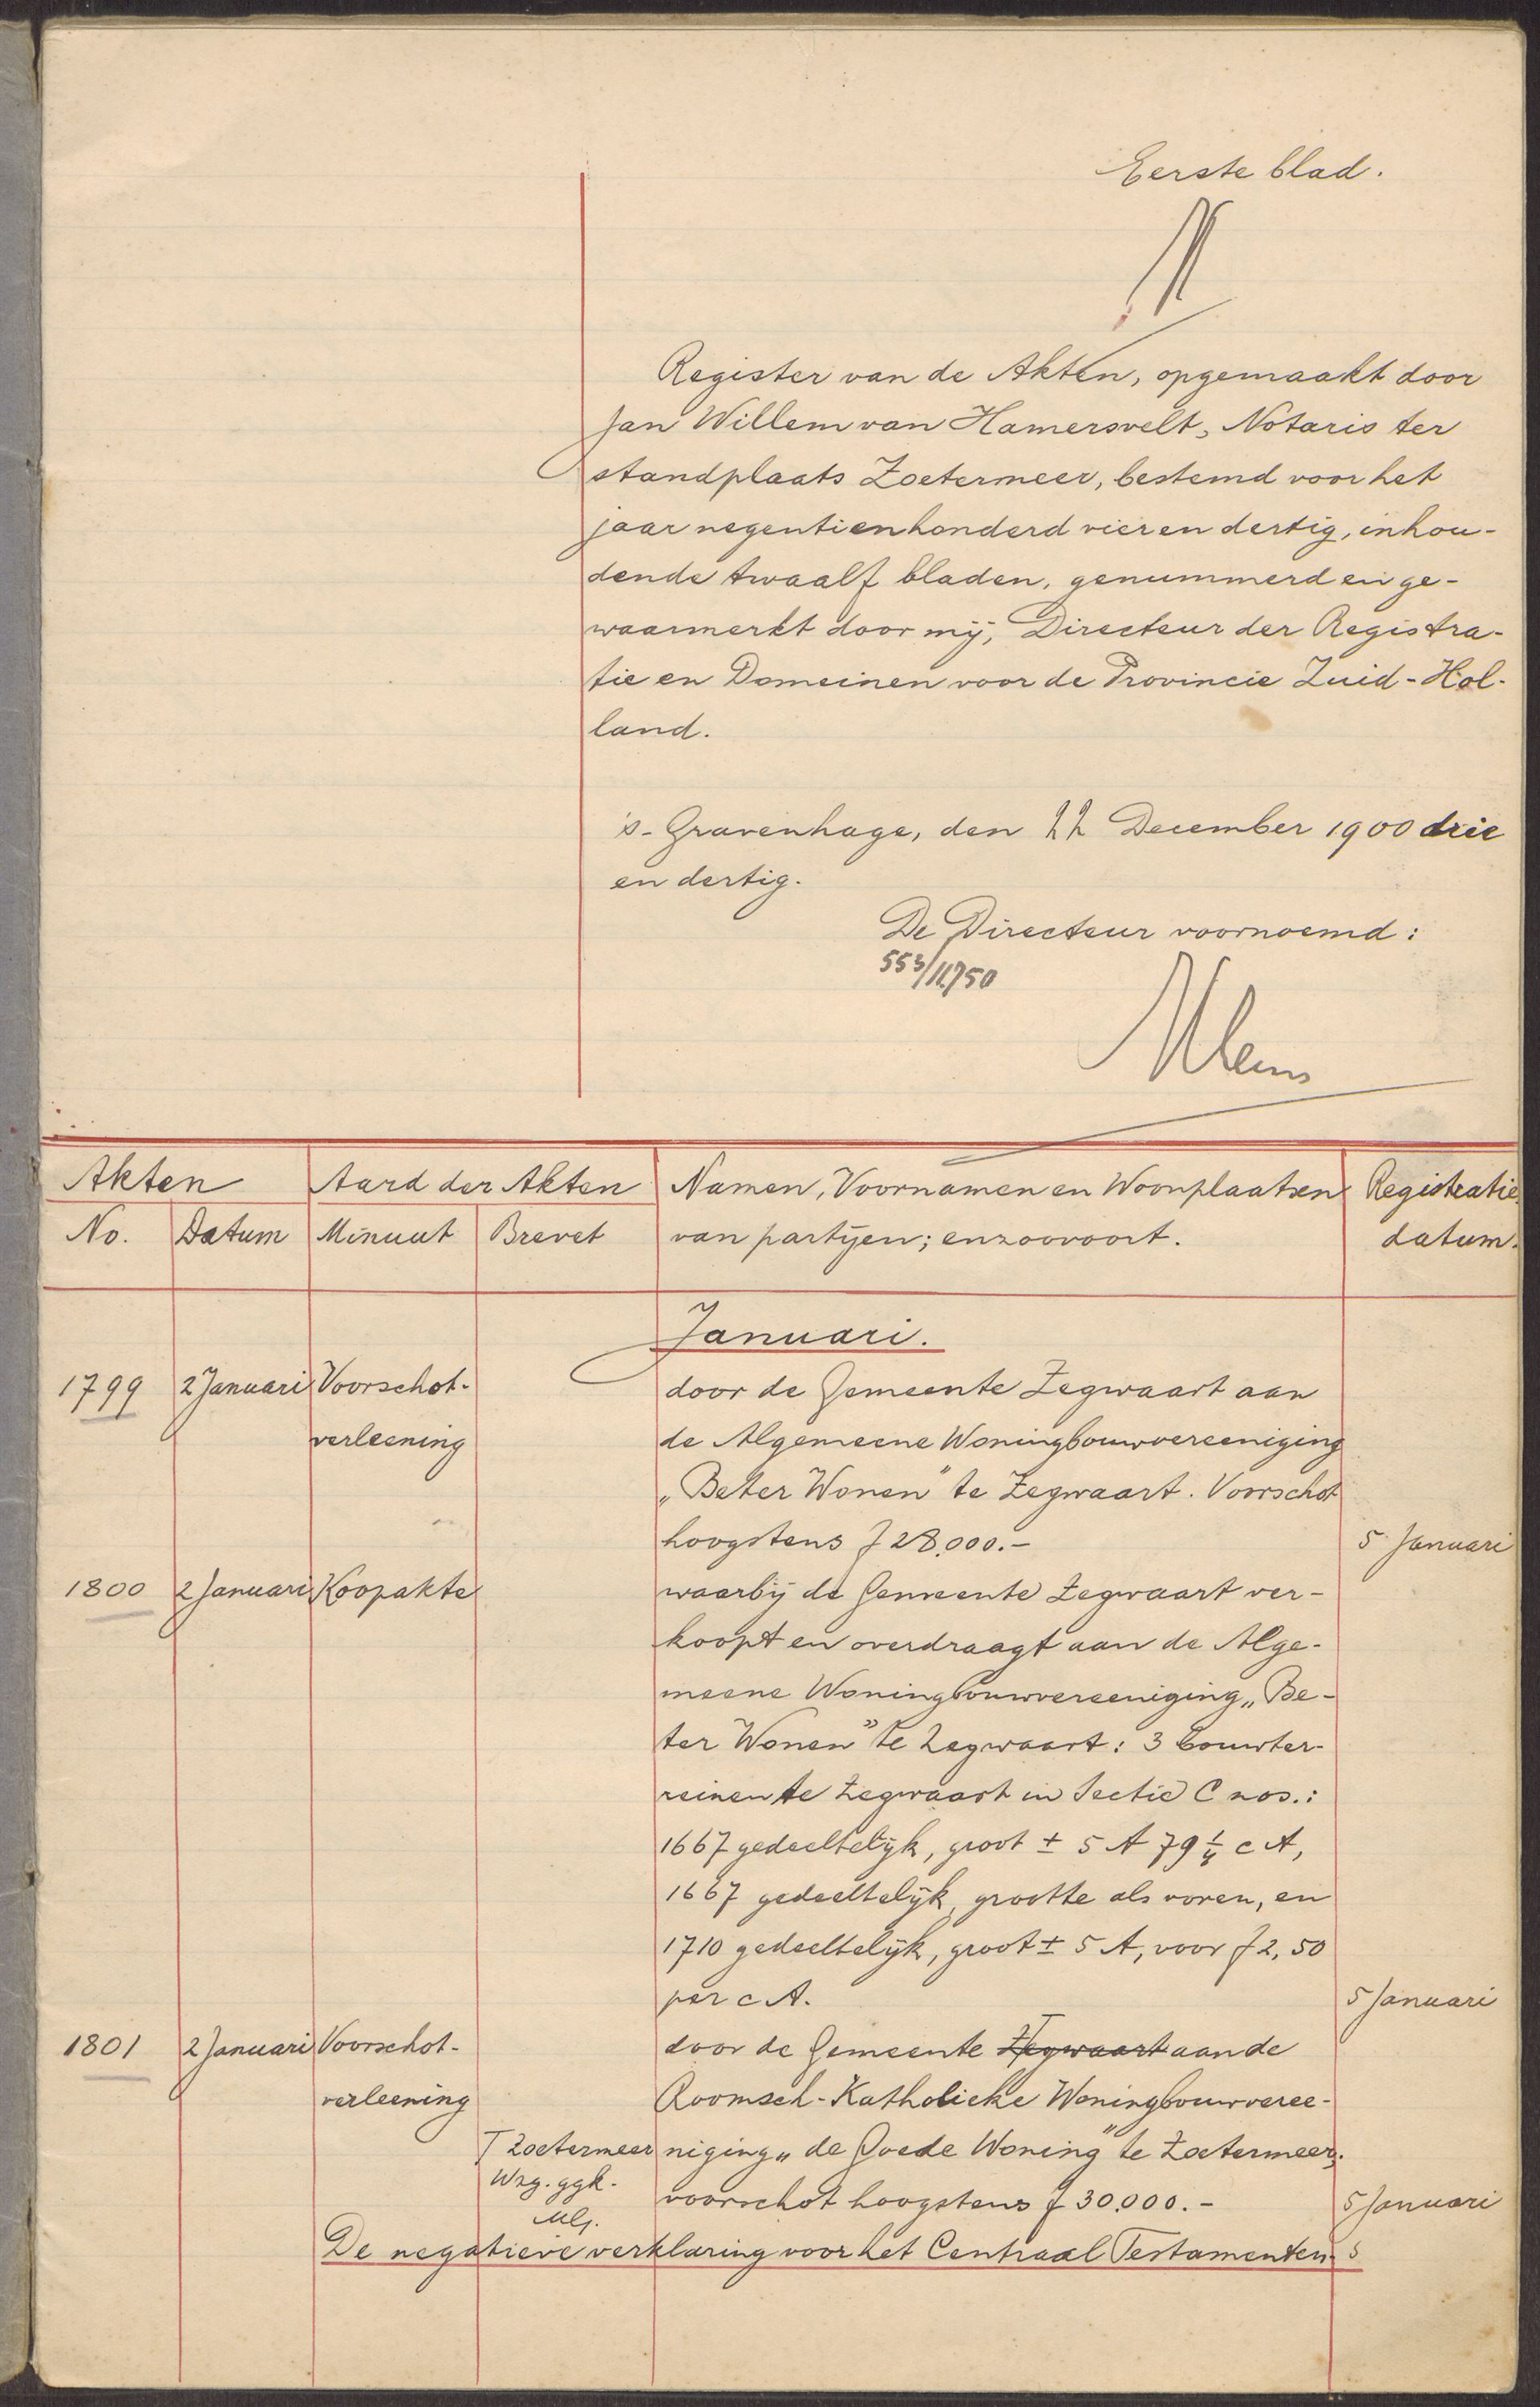 Eerste blad.
Register van de Akten, opgemaakt door
Jan Willem van Hamersvelt, Notaris ter
standplaats Zoetermeer, bestemd voor het
jaar negentienhonderd vier en dertig, inhou-
dende twaalf bladen, genummerd en ge-
waarmerkt door mij, Directeur der Registra-
tie en Domeinen voor de Provincie Zuid-Hol-
land.
's-Gravenhage, den 22 December 1900 drie
en dertig.
De Directeur voornoemd:
553/11950
Akten Aard der Akten Namen, Voornamen en Woonplaatsen Registratie
No. Datum Minuut Brevet van partijen; enzoovoort. datum.
Januari.
1799 2 Januari Voorschot- door de Gemeente Zegwaart aan
verleening de Algemeene Woningbouwvereeniging
„Beter Wonen" te Zegwaart. Voorschot
hoogstens ƒ 28.000.- 5 Januari
1800 2 Januari Koopakte waarbij de Gemeente Zegwaart ver-
koopt en overdraagt aan de Alge-
meene Woningbouwvereeniging „Be-
ter Wonen" te Zegwaart: 3 bouwter-
reinen te Zegwaart in Sectie C nos.:
1667 gedeeltelijk, groot ± 5 A 79 1/4 c A,
1667 gedeeltelijk, grootte als voren, en
1710 gedeeltelijk, groot ± 5 A, voor ƒ 2,50
per c A. 5 Januari
1801 2 Januari Voorschot- door de Gemeente Zegwaart aan de
verleening Roomsch-Katholieke Woningbouwveree-
Zoetermeer niging „de Goede Woning" te Zoetermeer;
Wzg. ggk. voorschot hoogstens ƒ 30.000.- 5 Januari
De negatieve verklaring voor het Centraal Testamenten-